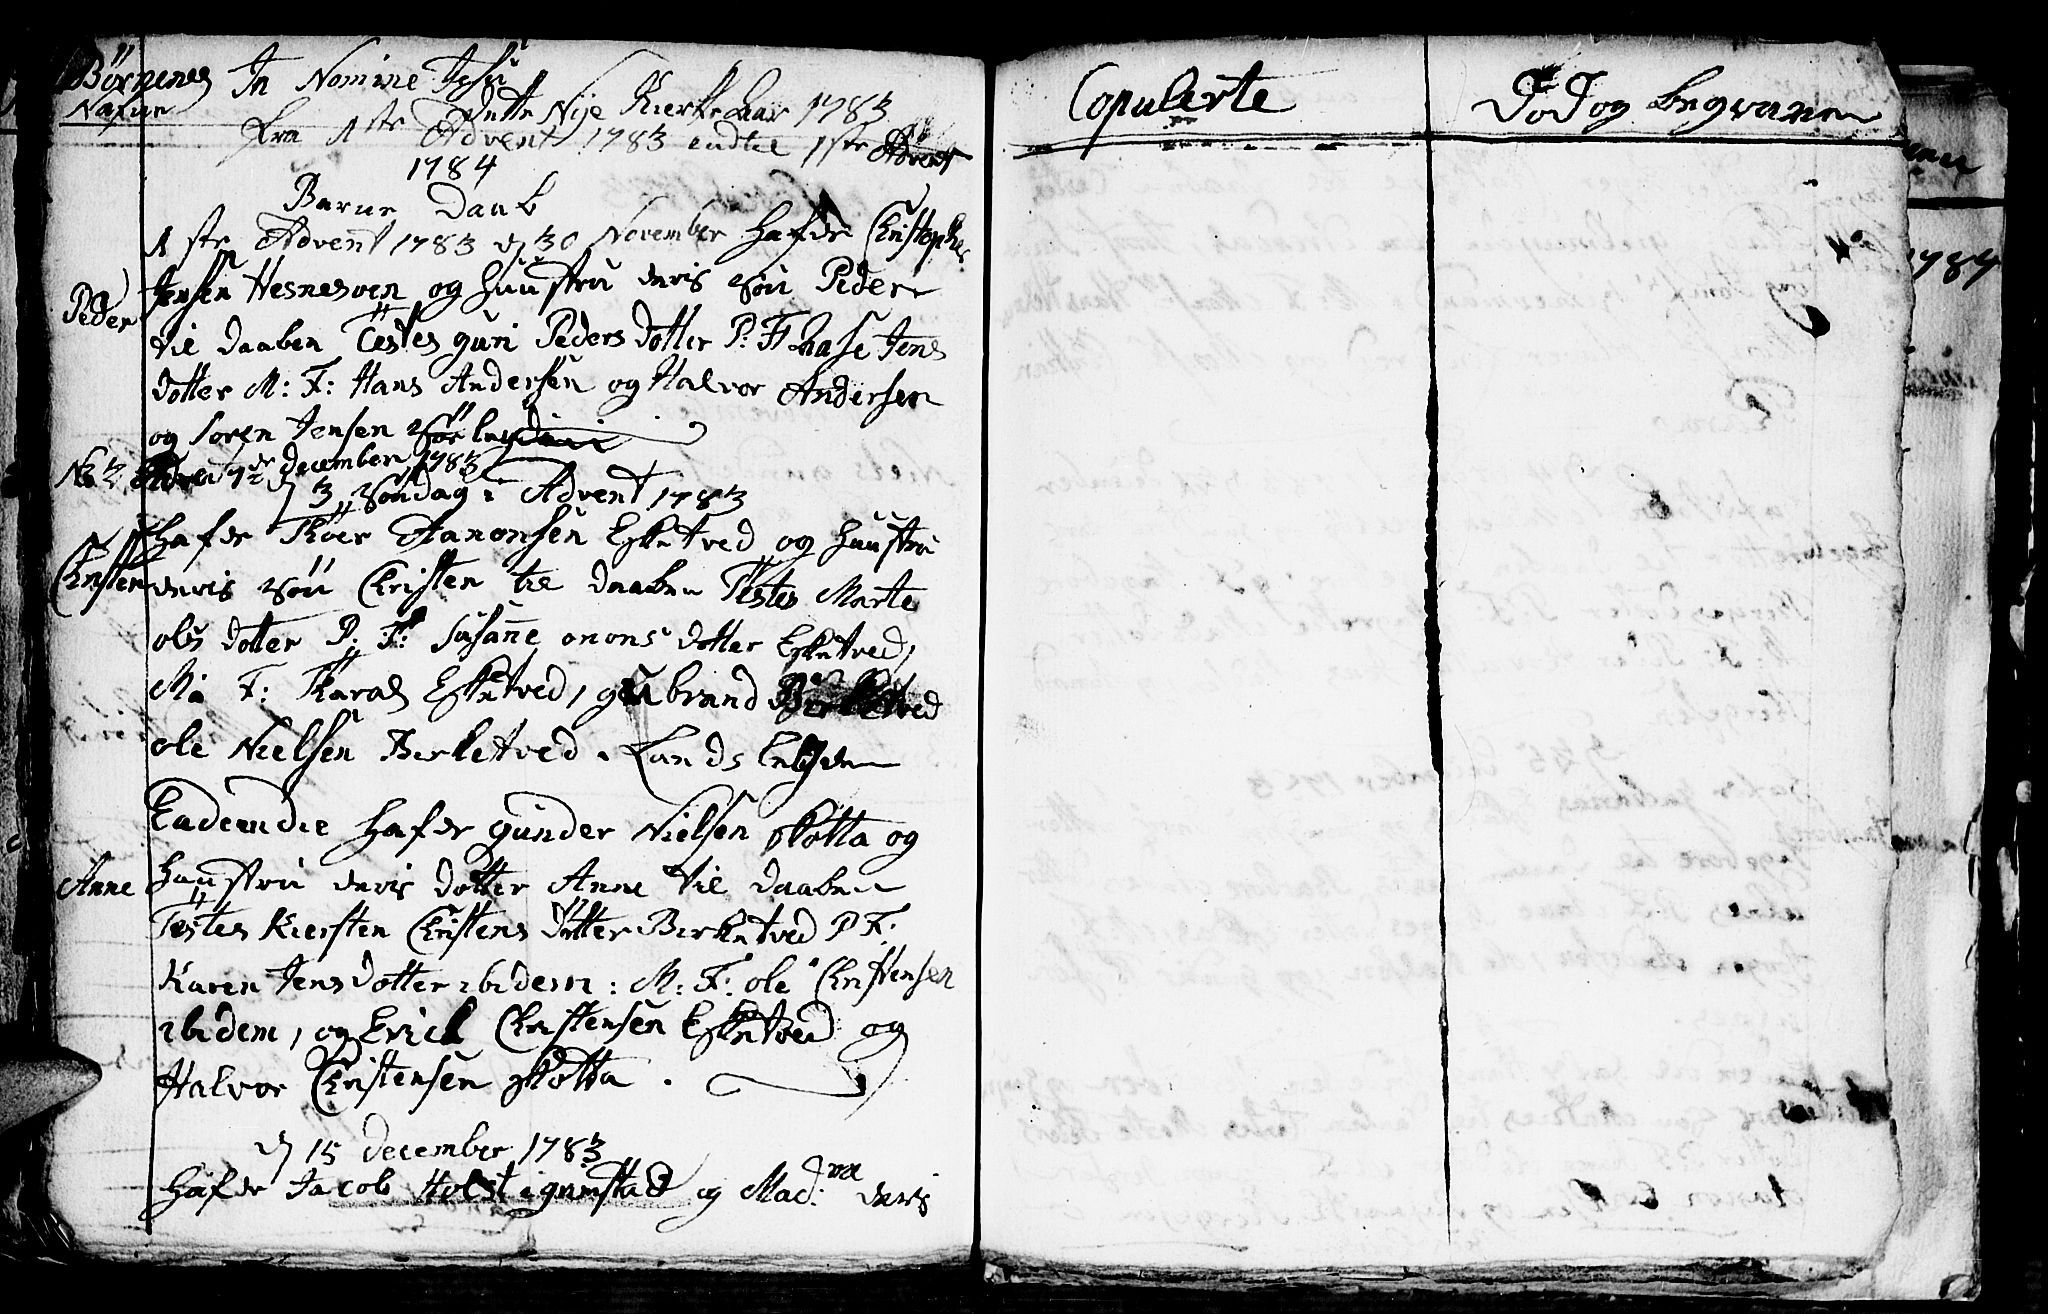 Børnenes
Nafne
In Nomine Jesu
dette Nye Kierke Aar 1783
fra 1ste Advent 1783 endte 1ste Advent
1784
Barne Daab
1ste Advent 1783 d 30 November hafde Christopher
Jensen Hesnesøen og Huustru deris Søn Peder
Peder
til daaben Testes guri Peders dotter P: F: Aase Jens
dotter M: F: Hans Andersen og Halvor Andersen
og Soren Jensen
No 2 Advent 7de december 1783
d 3 Søndag i Advent 1783
hafde Thoer Aanonsen Esketved og Huustru
Christen
deris Søn Christen til daaben Testes Marte
ols dotter P: F: Susanne onons dotter Esketved,
M: F: Esketved, gulbrand Birketved
ole Nielsen Birketved.
Eadem die hafde gunder Nielsen skotta og
Anne
Huustru deris dotter Anne til daaben
Testes Kiersten Christens dotter Birketved P F:
Karen Jens dotter ibidem: M: F: ole Christensen
ibidem, og Erick Christensen Esketved og
Halvor Christensen skotta.
d 15 december 1783
hafde Jacob Holst i grimstad og Mad: deris
Copulerte
Død og begravene
1784